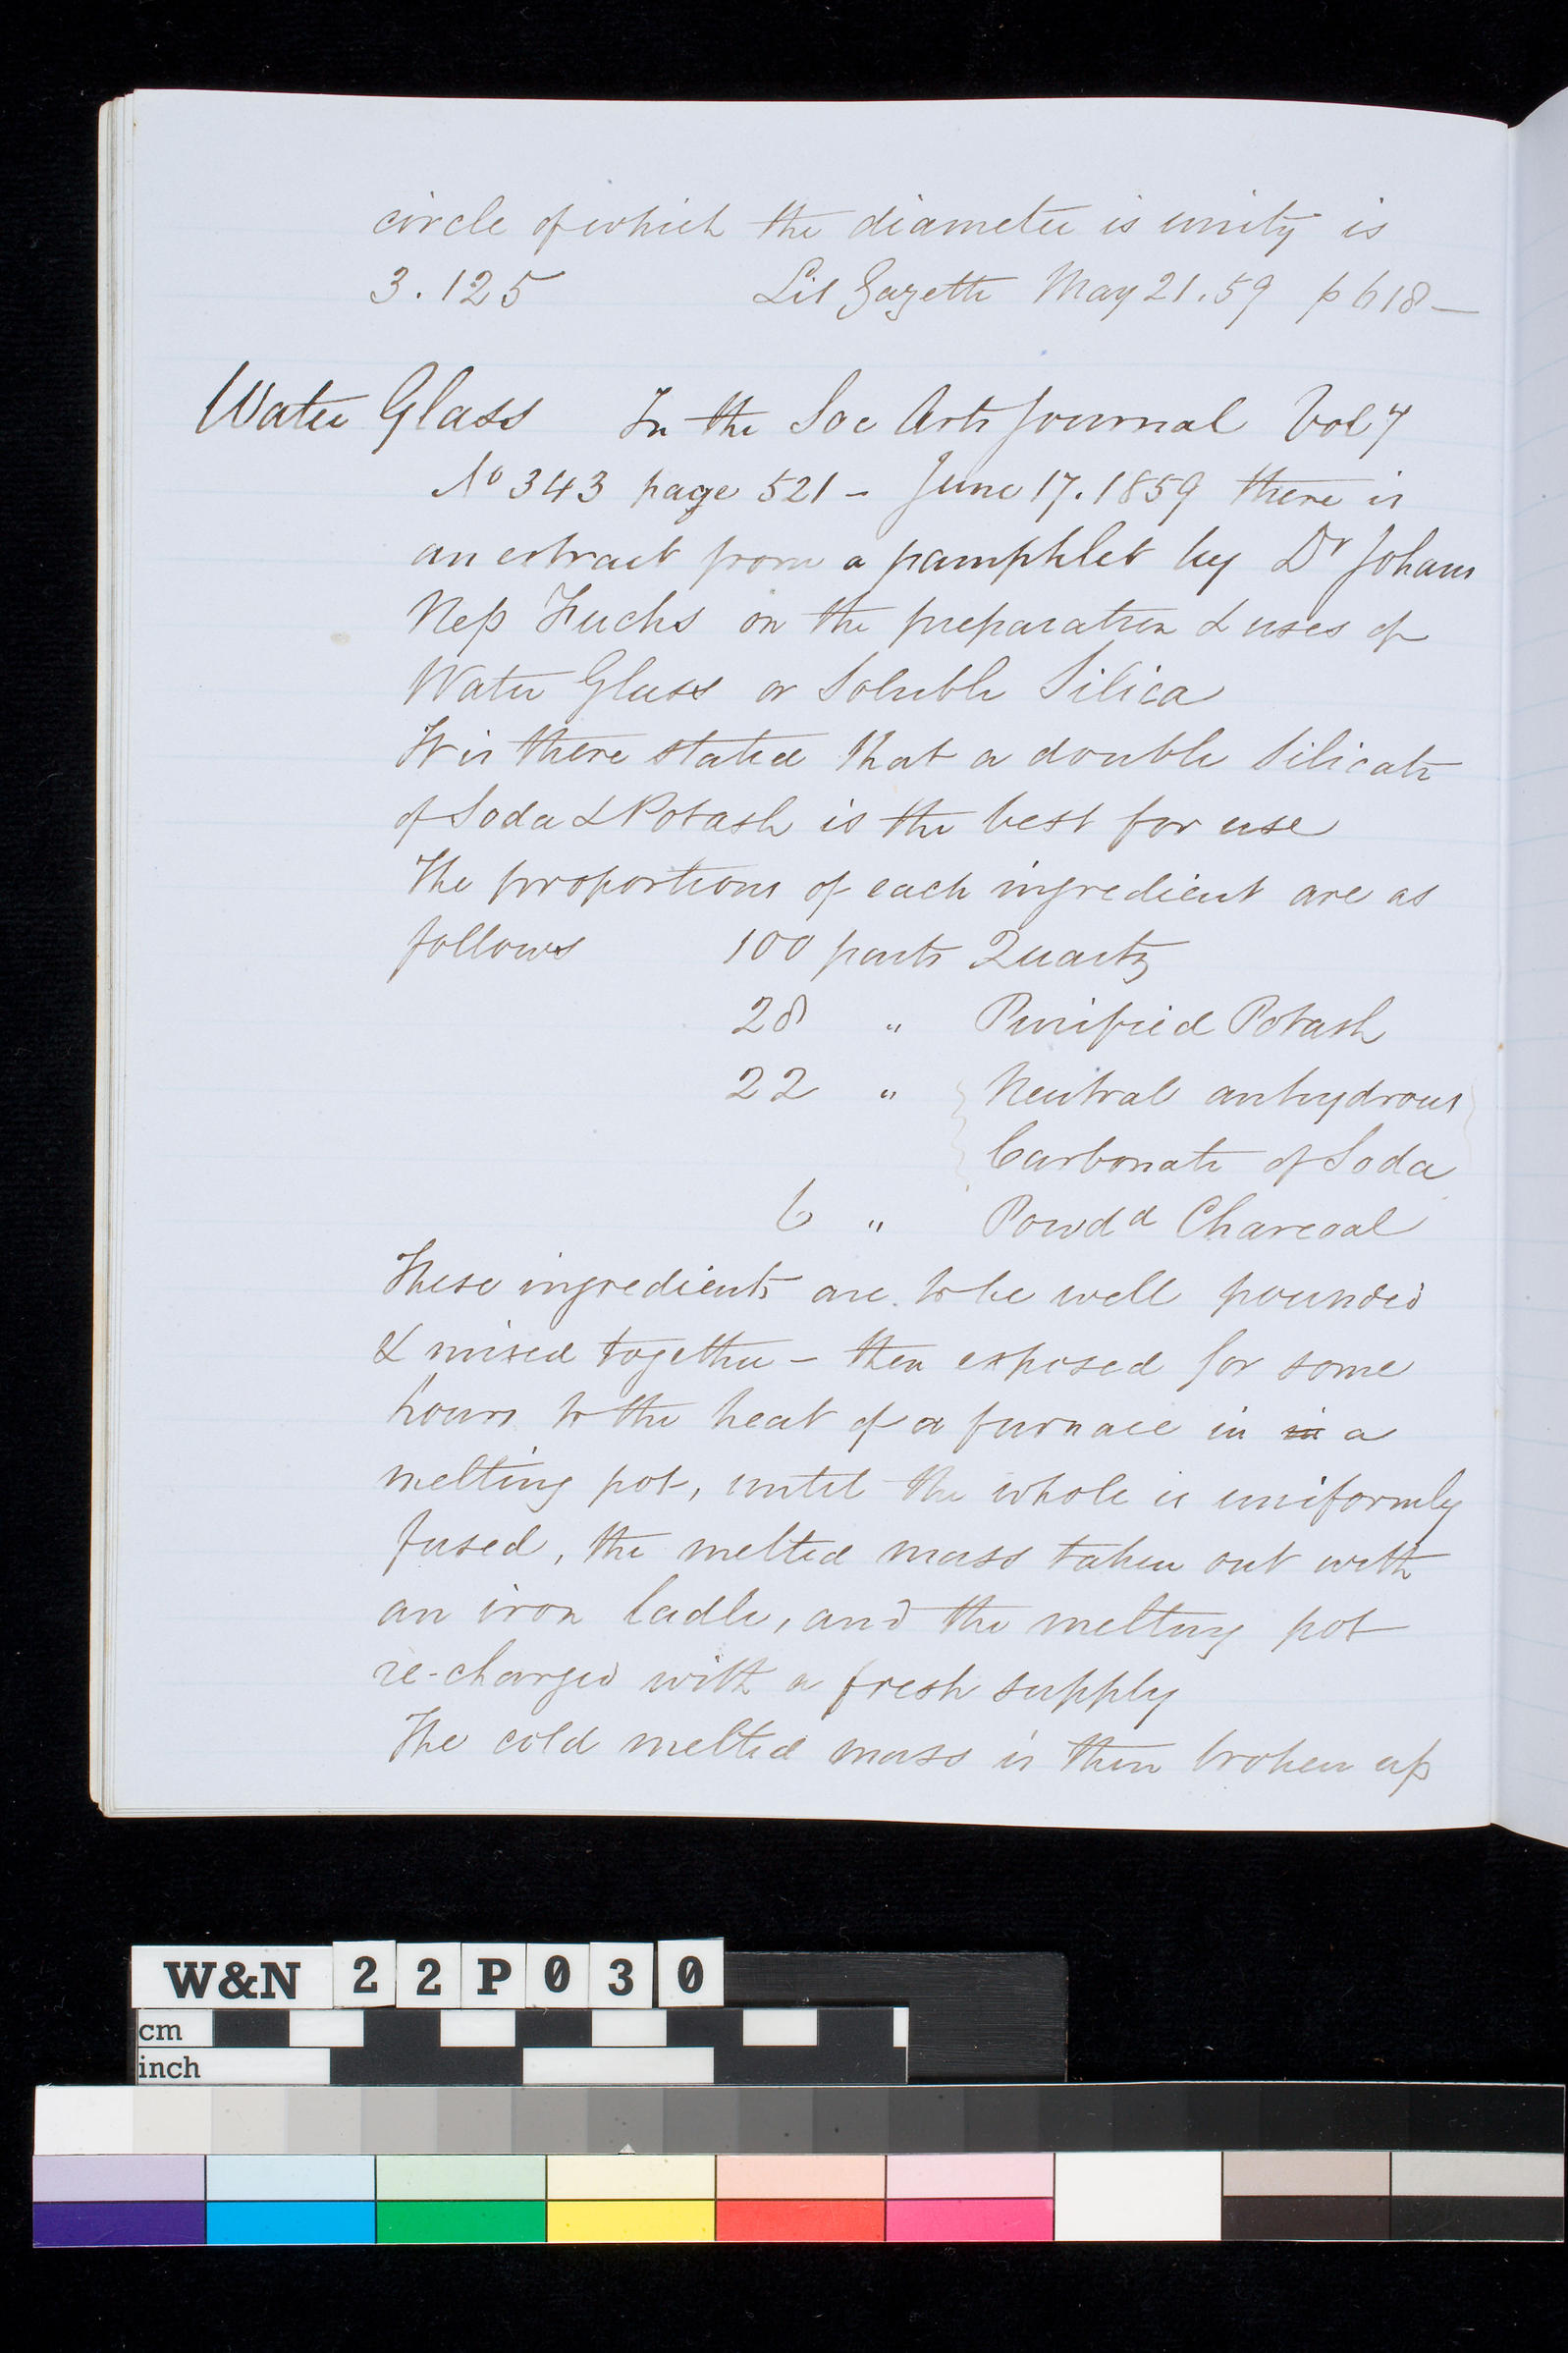 circle of which the diameter is unity is
3.125 Lit Gazette May 21.59 p 618 —
Water Glass In the Soc Arts Journal Vol 7
No 343 page 521 – June 17. 1859 there is
an extract from a pamphlet by Dr Johann
Nep Fuchs on the preparation & uses of
Water Glass or Soluble Silica
It is there stated that a double Silicate
of Soda & Potash is the best for use
The proportions of each ingredient are as
follows 100 parts Quartz
28 " Purified Potash
22 " { Neutral anhydrous }
Carbonate of Soda
6 " Powdd Charcoal
These ingredients are to be well pounded
& mixed together – then exposed for some
hours to the heat of a furnace in in a
melting pot, until the whole is uniformly
fused, the melted mass taken out with
an iron ladle, and the melting pot
re-charged with a fresh supply
The cold melted mass is then broken up
W&N 22P030
cm
inch